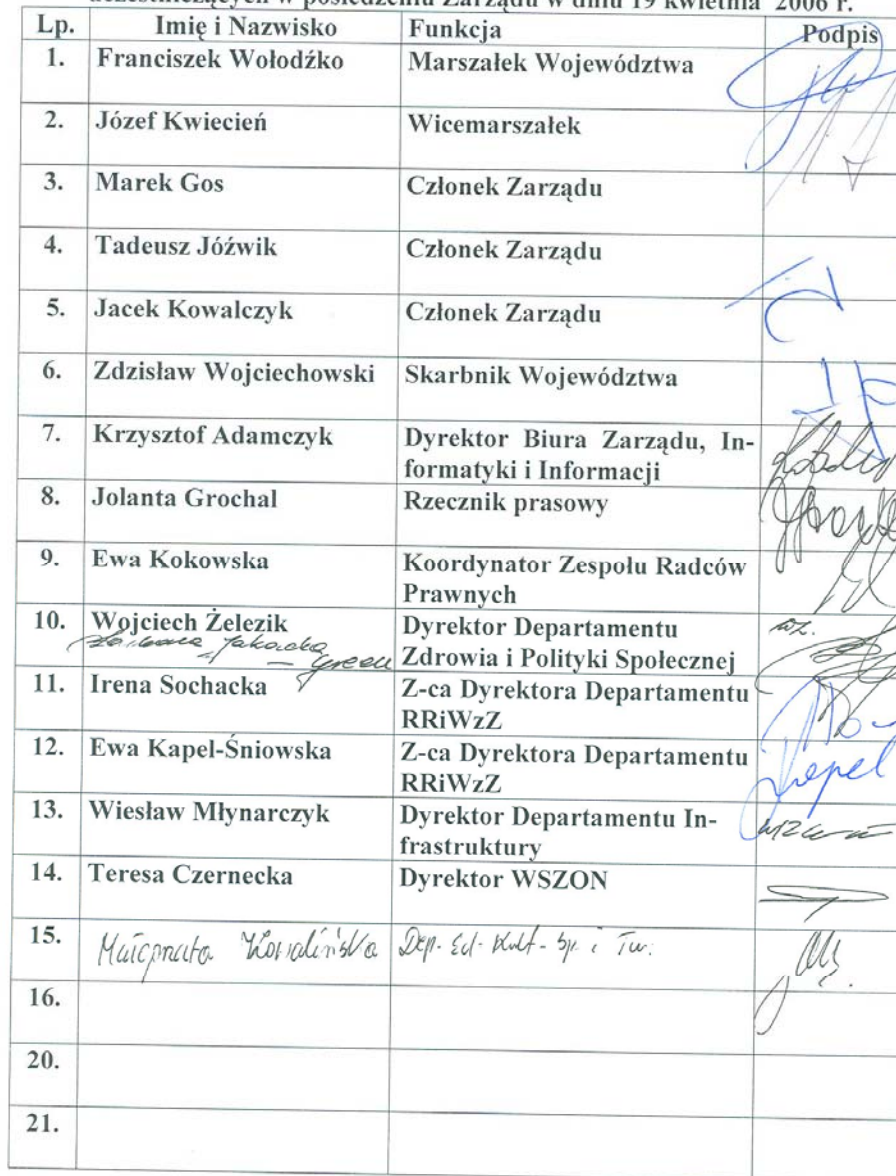 uczestniczących w posiedzeniu Zarządu w dniu 19 kwietnia 2006 r.
Lp. Imię i Nazwisko Funkcja Podpis
1. Franciszek Wołodźko Marszałek Województwa
2. Józef Kwiecień Wicemarszałek
3. Marek Gos Członek Zarządu
4. Tadeusz Jóźwik Członek Zarządu
5. Jacek Kowalczyk Członek Zarządu
6. Zdzisław Wojciechowski Skarbnik Województwa
7. Krzysztof Adamczyk Dyrektor Biura Zarządu, In-
formatyki i Informacji
8. Jolanta Grochal Rzecznik prasowy
9. Ewa Kokowska Koordynator Zespołu Radców
Prawnych
10. Wojciech Żelezik Dyrektor Departamentu
Zdrowia i Polityki Społecznej
wz.
11. Irena Sochacka Z-ca Dyrektora Departamentu
RRiWzZ
12. Ewa Kapel-Śniowska Z-ca Dyrektora Departamentu
RRiWzZ
13. Wiesław Młynarczyk Dyrektor Departamentu In-
frastruktury
14. Teresa Czernecka Dyrektor WSZON
15. Małgorzata Dep. Ed. Kult. Sp. i Tur.
16.
20.
21.